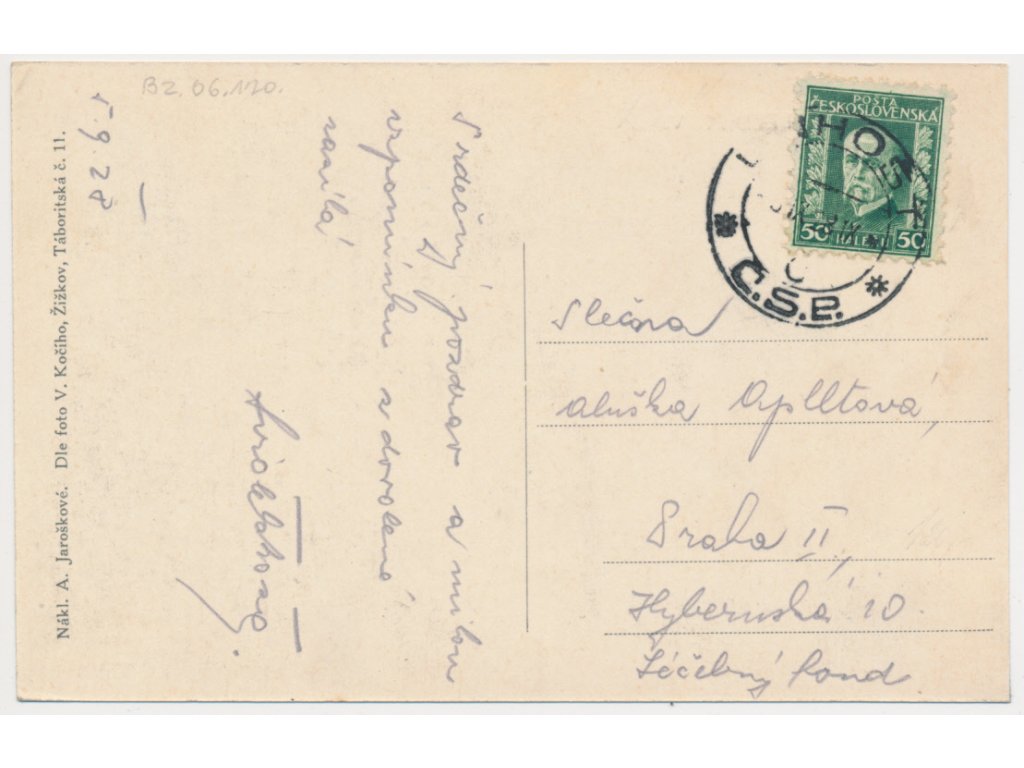 BZ.06.120.
5. 9. 28
Srdečný pozdrav a milou
vzpomínku z dovolené
zasílá
POŠTA
ČESKOSLOVENSKÁ
50 HALÉŘŮ 50
Č.S.P.
Slečna
Aluška Applltová,
Praha II,
Hybernská 10.
Léčebný fond
Nákl. A. Jaroškové. Dle foto V. Kočího, Žižkov, Táboritská č. 11.